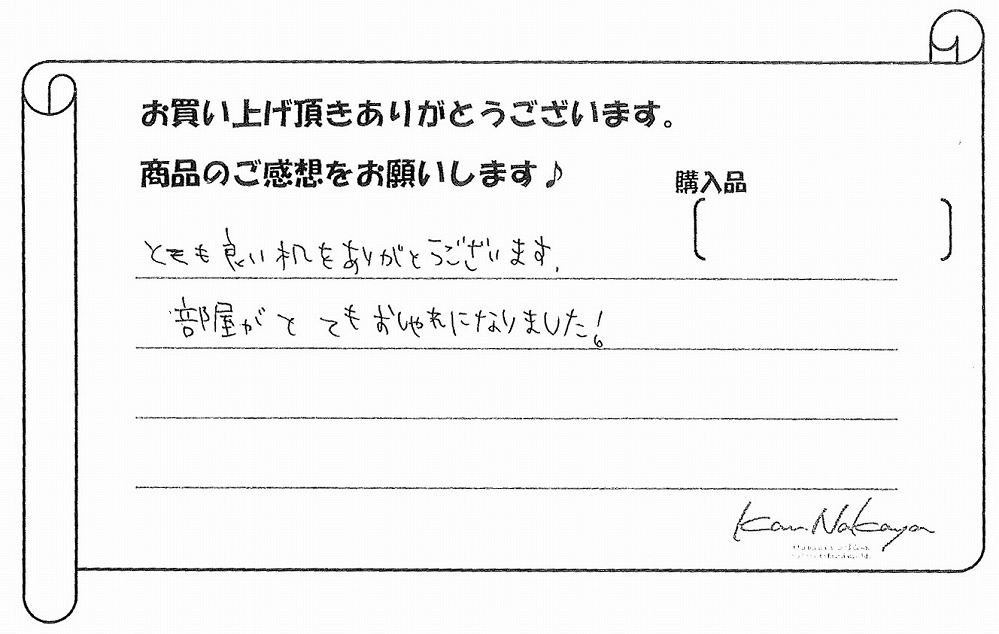 お買い上げ頂きありがとうございます。
商品のご感想をお願いします♪
購入品
とても良い机をありがとうございます。
部屋がとてもおしゃれになりました!
Kan Nakaya